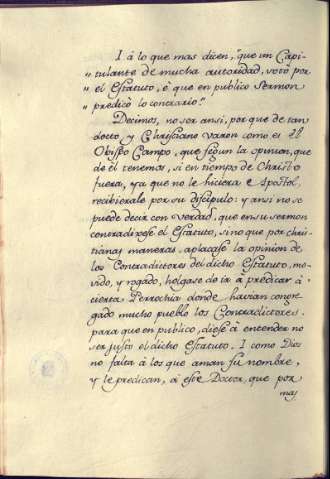 I á lo que mas dicen, "que un Capi-
" tulante de mucha autoridad, votó por
" el Estatuto, é que en publico sermon
" predicó lo contrario."
Decimos, no ser ansi, por que de tan
docto, y Christiano varon como es el
Obispo Campo, que segun la opinion, que
de él tenemos, si en tiempo de Christo
fuera, ya que no le hiciera Apostol,
recibierale por su discipulo: y ansi no se
puede decir con verdad, que en su sermon
contradixese el Estatuto, sino que por chris-
tianas maneras aplacase la opinion de
los Contradictores del dicho Estatuto, mo-
vido, y rogado, holgase de ir á predicar á
cierta Perrochia donde havian congre-
gado mucho pueblo los Contradictores.
para que en publico, diese á entender no
ser justo el dicho Estatuto. I como Dios
no falta á los que aman su nombre,
y le predican, á este Doctor, que por
mas